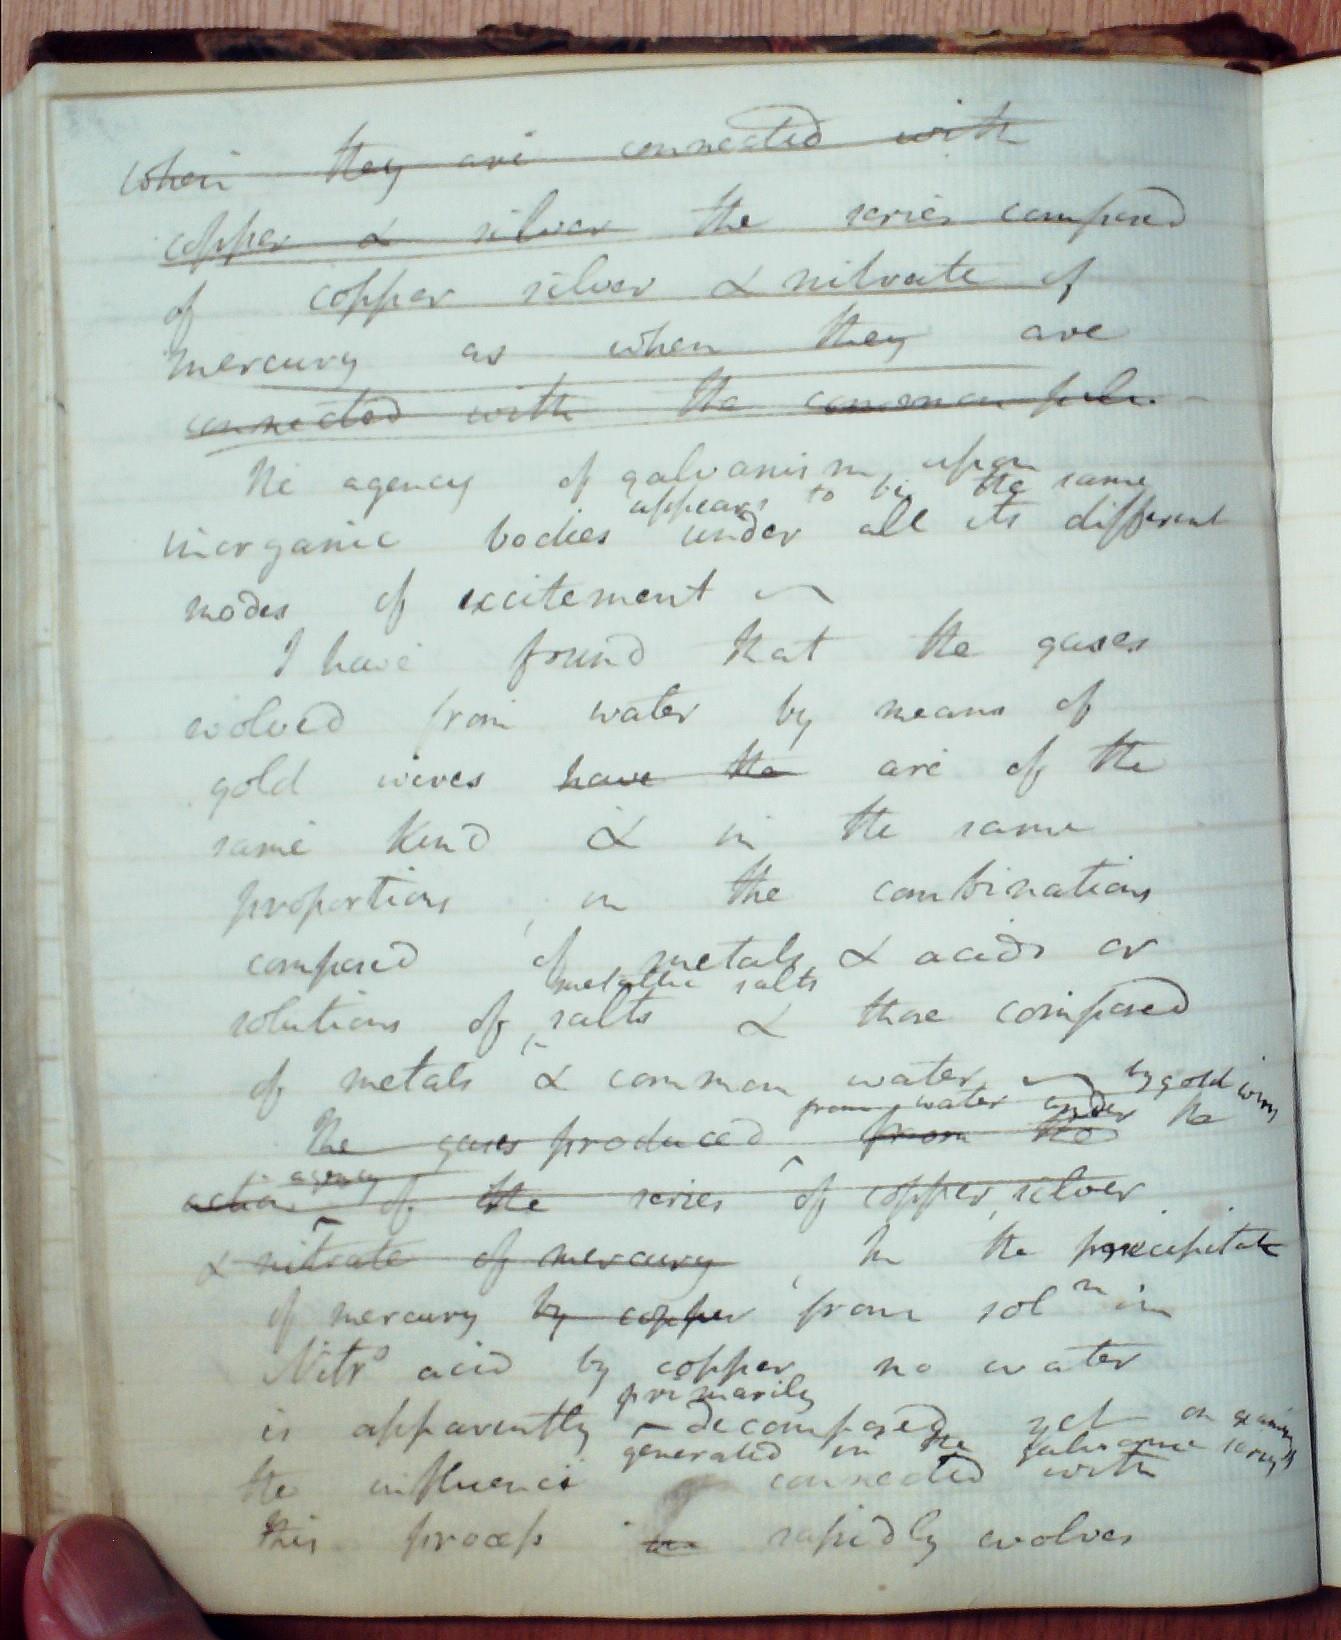 when they are connected with
copper & silver the series composed
of copper silver & nitrate of
mercury as when they are
connected with the common pile.
The agency of galvanism, upon
appears to be the same
inorganic bodies under all its different
modes of excitement
I have found that the gases
evolved from water by means of
gold wires have the are of the
same kind & in the same
proportions, in the combinations
composed of metals & acids or
metallic salts
solutions of salts & those composed
of metals & common water by gold wires
from water under
The gases produced from the the
agency
action of the series of copper, silver
& nitrate of mercury, In the precipitate
of mercury by copper from soln in
Nitrs acid by copper no water
primarily
is apparently decomposed yet on
generated in the galvanic series
the influence connected with
this process rapidly evolves